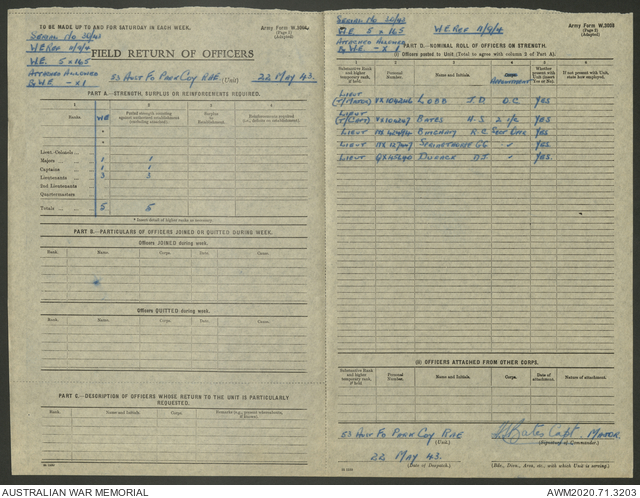 TO BE MADE UP TO AND FOR SATURDAY IN EACH WEEK.
Army Form W.3008
(Page 1)
(Adapted)
SERIAL No 26/43
W.E. REF 11/4/4
W.E. 5 x 165
ATTACHED ALLOWED
By W.E. - X1
FIELD RETURN OF OFFICERS
53 AUST FD PARK COY RAE. (Unit) 22 MAY 43.
PART A.—STRENGTH, SURPLUS OR REINFORCEMENTS REQUIRED.
1 2 3 4
Ranks. WE Posted strength counting against authorized establishments (excluding attached). Surplus to Establishment.
Lieut.-Colonels
Majors 1 1
Captains 1 1
Lieutenants 3 3
2nd Lieutenants
Quartermasters
Totals 5 5
* Insert detail of higher ranks as necessary.
PART B.—PARTICULARS OF OFFICERS JOINED OR QUITTED DURING WEEK.
Officers JOINED during week.
Rank. Name and Initials. Corps. Date. Cause.
Officers QUITTED during week.
Rank. Name and Initials. Corps. Date. Cause.
PART C.—DESCRIPTION OF OFFICERS WHOSE RETURN TO THE UNIT IS PARTICULARLY
REQUESTED.
Rank. Name and Initials. Corps.
SERIAL No 26/43
W.E. 5 x 165
W.E. REF 11/4/4
ATTACHED ALLOWED
By W.E. - X1
Army Form W.3008
(Page 2)
(Adapted)
PART D.—NOMINAL ROLL OF OFFICERS ON STRENGTH.
(i) Officers posted to Unit (Total to agree with column 2 of Part A).
1 2 3 4 5 6
Substantive Rank and higher temporary rank, if held Personal Number. Name and Initials. APPOINTMENT Whether present with Unit (insert Yes or No). If not present with Unit, state how employed.
LIEUT
(T/MAJOR) LOBB J.D. O.C. YES
LIEUT
(T/CAPT) BATES H.S. 2 i/c YES.
LIEUT BINGHAM YES.
LIEUT YES.
LIEUT YES.
(ii) OFFICERS ATTACHED FROM OTHER CORPS.
Substantive Rank and higher temporary rank, if held Personal Number. Name and Initials. Corps. Date of attachment. Nature of attachment.
53 AUST FD PARK COY RAE
(Unit.)
HSBates Capt. MAJOR.
(Signature of Commander.)
22 MAY 43.
(Date of Despatch.)
(Bde., Divn., Area, etc., with which Unit is serving.)
AUSTRALIAN WAR MEMORIAL
AWM2020.71.3203